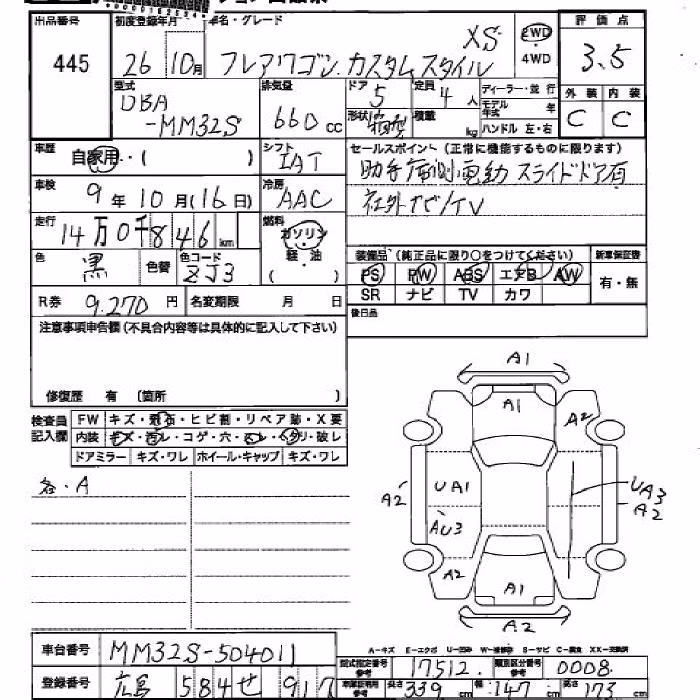 出品番号 初度登録年月 車名・グレード 評価点
445 26年10月 フレアワゴン カスタムスタイル XS 2WD・4WD 3.5
型式 DBA-MM32S 排気量 660cc ドア 5 定員 4人 ディーラー・並行 外装 内装
形状 積載 kg モデル年式 年 ハンドル 左・右 C C
車歴 自家用・( ) シフト IAT セールスポイント(正常に機能するものに限ります)
車検 9年10月(16日) 冷房 AAC 助手席側電動スライドドア有
走行 14万0千846km 燃料 ガソリン・軽油( ) 社外ナビ/TV
色 黒 色替 色コード ZJ3 装備品(純正品に限り○をつけてください) 新車保証書
PS PW ABS エアB AW 有・無
SR ナビ TV カワ
R券 9.270円 名変期限 月 日 後日品
注意事項申告欄(不具合内容等は具体的に記入して下さい)
修復歴 有 〔箇所 〕
検査員記入欄 FW キズ・飛石・ヒビ割・リペア跡・X要
内装 キズ・汚レ・コゲ・穴・スレ・ヘタリ・破レ
ドアミラー キズ・ワレ ホイール・キャップ キズ・ワレ
各・A
A1
A1
A2
A2
UA1
UA3
A2
AU3
A2
A1
A2
A-キズ E-エクボ U-凹み W-補修跡 S-サビ C-腐食 XX-交換済
車台番号 MM32S-504011
型式指定番号 参考 17512 類別区分番号 参考 0008
登録番号 広島 584 せ 917
車体証明用 参考 長さ 339cm 幅 147cm 高さ 173cm